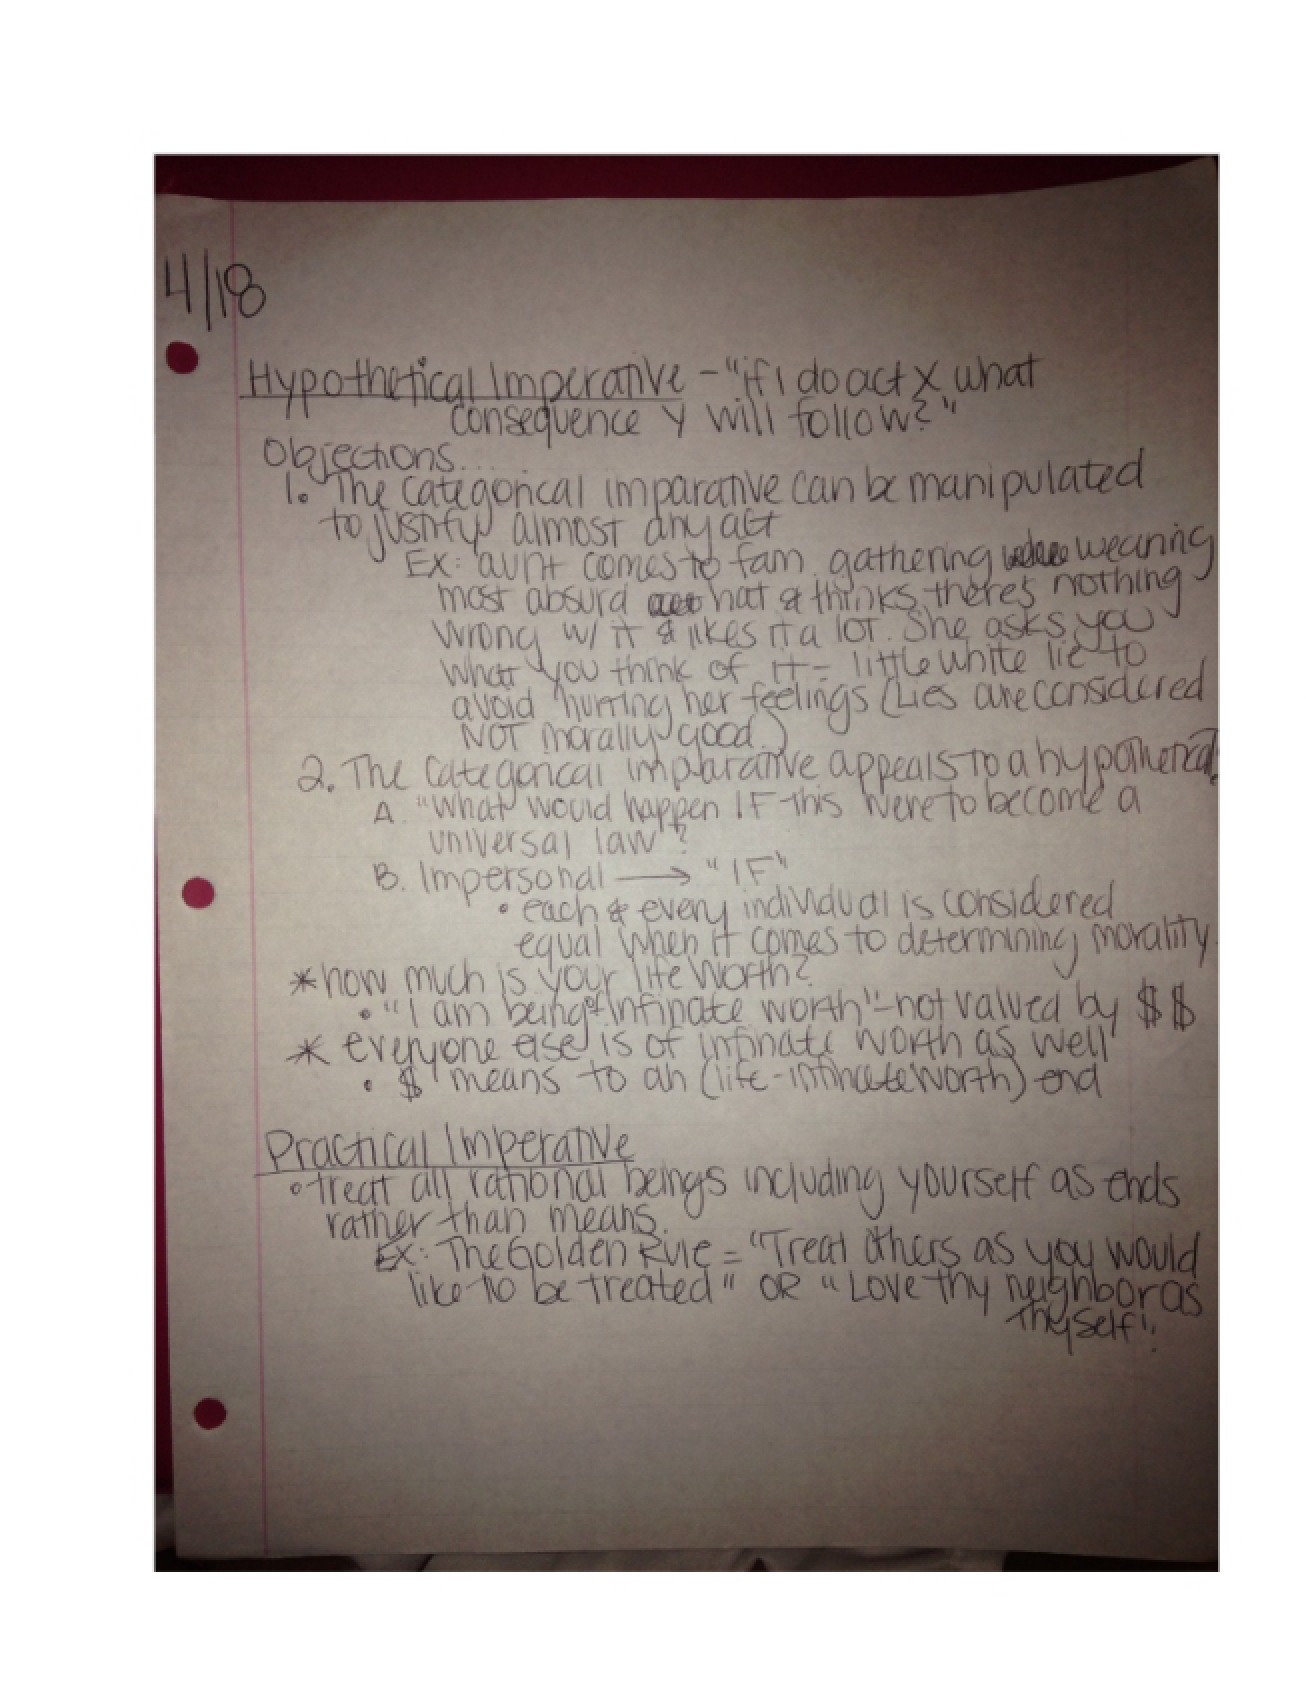 4/18
Hypothetical Imperative - "if I do act X, what
consequence Y will follow?"
Objections....
1. The categorical imparative can be manipulated
to justify almost any act
EX: aunt comes to fam. gathering wearing
most absurd hat & thinks there's nothing
wrong w/ it & likes it a lot. She asks you
what you think of it - little white lie to
avoid hurting her feelings (Lies are considered
NOT morally good.)
2. The categorical imparative appeals to a hypothetical.
A. "What would happen IF this were to become a
universal law"?
B. Impersonal → "IF"
• each & every individual is considered
equal when it comes to determining morality.
* how much is your life worth?
• "I am being of infinate worth" - not valued by $$
* everyone else is of infinate worth as well
• $ means to an (life - infinate worth) end
Practical Imperative
• treat all rational beings including yourself as ends
rather than means.
EX: The Golden Rule = "Treat others as you would
like to be treated" OR "Love thy neighbor as
thyself".